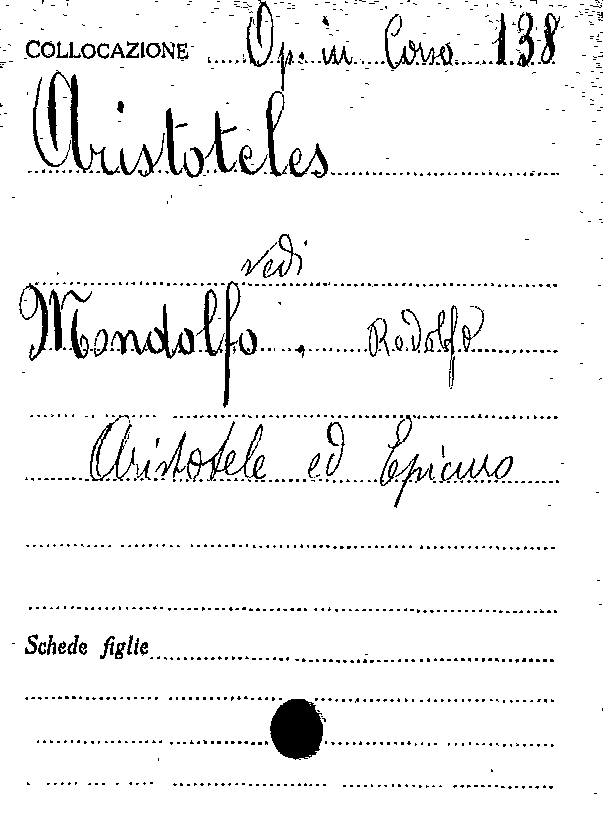 COLLOCAZIONE Op. in Corso 138
Aristoteles
vedi
Mondolfo. Rodolfo
Aristotele ed Epicuro
Schede figlie